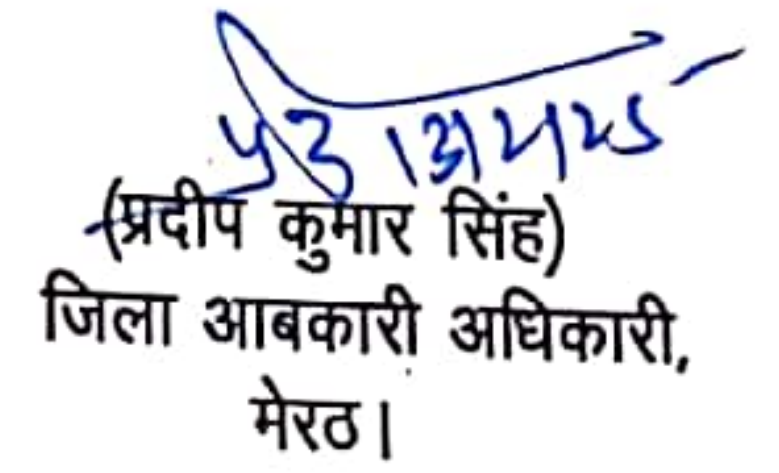 (प्रदीप कुमार सिंह)
जिला आबकारी अधिकारी,
मेरठ।